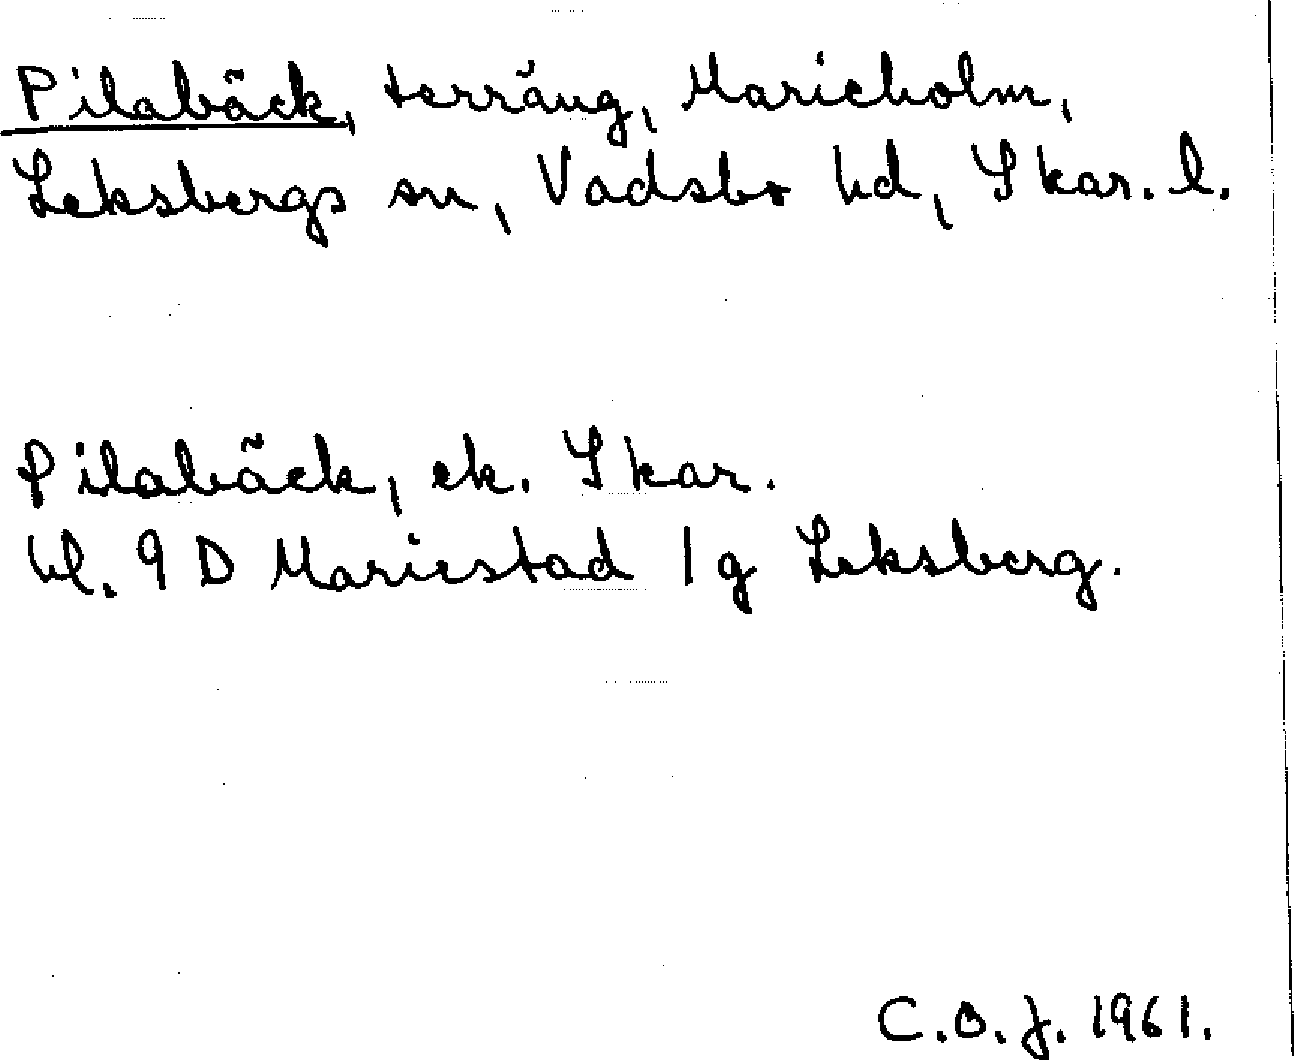 Pilabäck, terräng, Marieholm,
Leksbergs sn, Vadsbo hd, Skar. l.
Pilabäck, ek. Skar.
bl. 9 D Mariestad 1g Leksberg.
C.O.J. 1961.